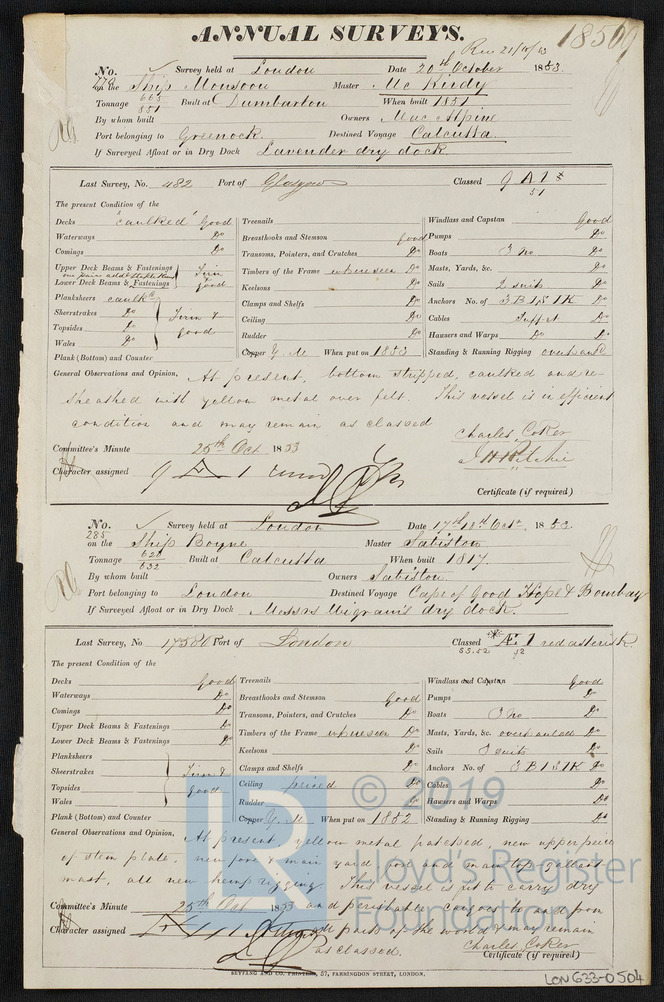 ANNUAL SURVEYS.
Rec 21/10/53
18509
No. 778 Survey held at London Date 20th October 1853.
on the Ship Monsoon Master Mc Kirdy
Tonnage 665 851 Built at Dumbarton When built 1851
By whom built Owners Mac Alpine
Port belonging to Greenock. Destined Voyage Calcutta.
If Surveyed Afloat or in Dry Dock Lavender dry dock
Last Survey, No. 482 Port of Glasgow Classed 9 A 1 51
The present Condition of the
Decks "caulked" Good
Waterways Do
Comings Do
Upper Deck Beams & Fastenings
Lower Deck Beams & Fastenings Firm good
Planksheers caulkd
Sheerstrakes Do Firm &
Topsides Do good
Wales Do
Plank (Bottom) and Counter
Treenails
Breasthooks and Stemson Good
Transoms, Pointers, and Crutches Do
Timbers of the Frame where seen Do
Keelsons Do
Clamps and Shelfs Do
Ceiling Do
Rudder Do
Copper Y. M. When put on 1853
Windlass and Capstan Good
Pumps Do
Boats 3 No Do
Masts, Yards, &c. Do
Sails 2 suits Do
Anchors No. of 3 B 1 S 1 K Do
Cables Suffet Do
Hawsers and Warps Do Do
Standing & Running Rigging
General Observations and Opinion, At present, bottom stripped, caulked and re-
sheathed with yellow metal over felt. This vessel is in efficient
condition and may remain as classed
Charles Coker
J H Ritchie
Committee's Minute 25th Oct 1853
Character assigned 9 A 1
Certificate (if required)
No. 285 Survey held at London Date 17th 18th Octr. 1853.
on the Ship Boyne Master Sabiston
Tonnage 620 632 Built at Calcutta When built 1817.
By whom built Owners Sabiston.
Port belonging to London Destined Voyage Cape of Good Hope & Bombay
If Surveyed Afloat or in Dry Dock Messrs Wigram's dry dock.
Last Survey, No 17580 Port of London Classed *Æ 1 red asterisk.
53.52 52
The present Condition of the
Decks Good
Waterways Do
Comings Do
Upper Deck Beams & Fastenings Do
Lower Deck Beams & Fastenings Do
Planksheers
Sheerstrakes Firm &
Topsides good
Wales
Plank (Bottom) and Counter
Treenails
Breasthooks and Stemson Good
Transoms, Pointers, and Crutches Do
Timbers of the Frame where seen Do
Keelsons Do
Clamps and Shelfs Do
Ceiling Do
Rudder Do
Copper Y. M. When put on 1852
Windlass and Capstan Good
Pumps Do
Boats 3 No Do
Masts, Yards, &c. overhauled Do
Sails 3 suits Do
Anchors No. of 3 B 1 S 1 K Do
Cables Do
Hawsers and Warps Do
Standing & Running Rigging Do
General Observations and Opinion, At present, yellow metal patched, new upper piece
of stem plate, new fore & main yard, fore and main top gallant
mast, all new hemp rigging. This vessel is fit to carry dry
and perishable cargoes to and from
all parts of the world & may remain
as classed.
Committee's Minute 25th Oct 1853
Character assigned
Charles Coker
Certificate (if required)
SEYFANG AND CO. PRINTERS, 57, FARRINGDON STREET, LONDON.
LON 633-0504
LR
© 2019
Lloyd's Register
Foundation